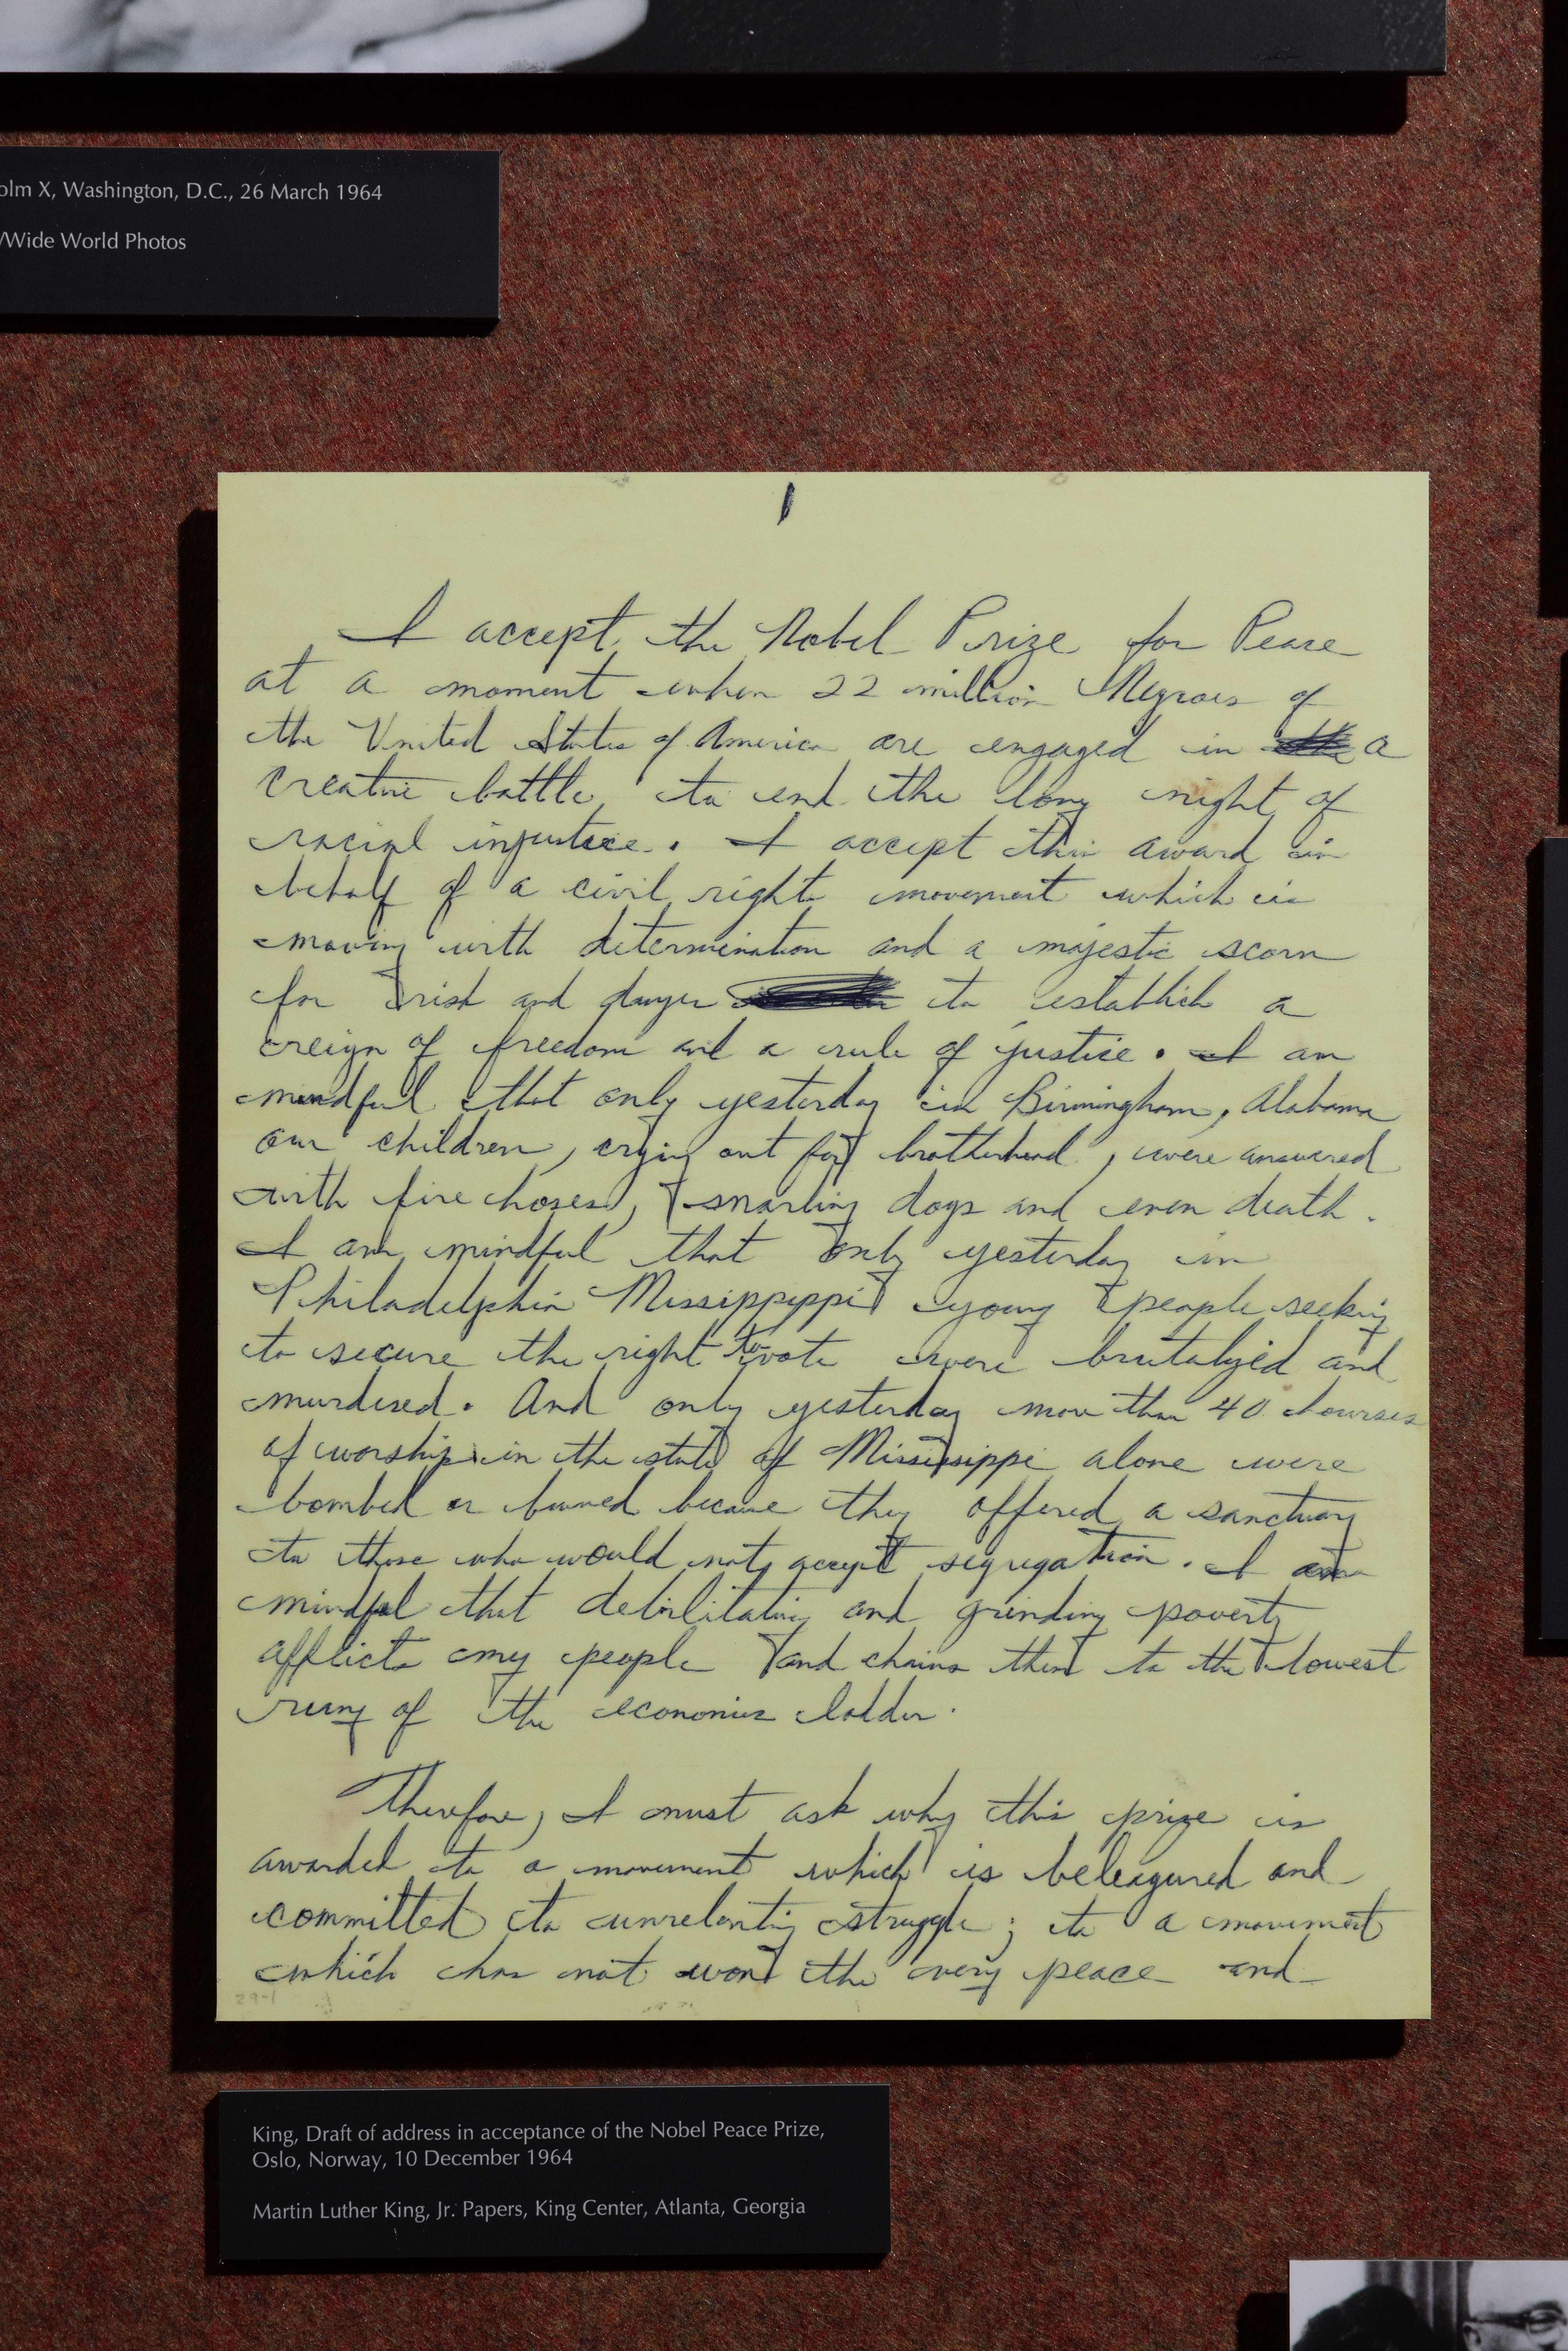 olm X, Washington, D.C., 26 March 1964
/Wide World Photos
1
I accept the Nobel Prize for Peace
at a moment when 22 million Negroes of
the United States of America are engaged in a
creative battle to end the long night of
racial injustice. I accept this award in
behalf of a civil rights movement which is
moving with determination and a majestic scorn
for risk and danger to establish a
reign of freedom and a rule of justice. I am
mindful that only yesterday in Birmingham, Alabama
our children, crying out for brotherhood, were answered
with fire hoses, snarling dogs and even death.
I am mindful that only yesterday in
Philadelphia Mississippippi young people seeking
to secure the right to vote were brutalized and
murdered. And only yesterday more than 40 houses
of worship in the state of Mississippi alone were
bombed or burned because they offered a sanctuary
to those who would not accept segregation. I am
mindful that debilitating and grinding poverty
afflicts my people and chains them to the lowest
rung of the economic ladder.
Therefore, I must ask why this prize is
awarded to a movement which is beleagured and
committed to unrelenting struggle; to a movement
which has not won the very peace and
29-1
King, Draft of address in acceptance of the Nobel Peace Prize,
Oslo, Norway, 10 December 1964
Martin Luther King, Jr. Papers, King Center, Atlanta, Georgia